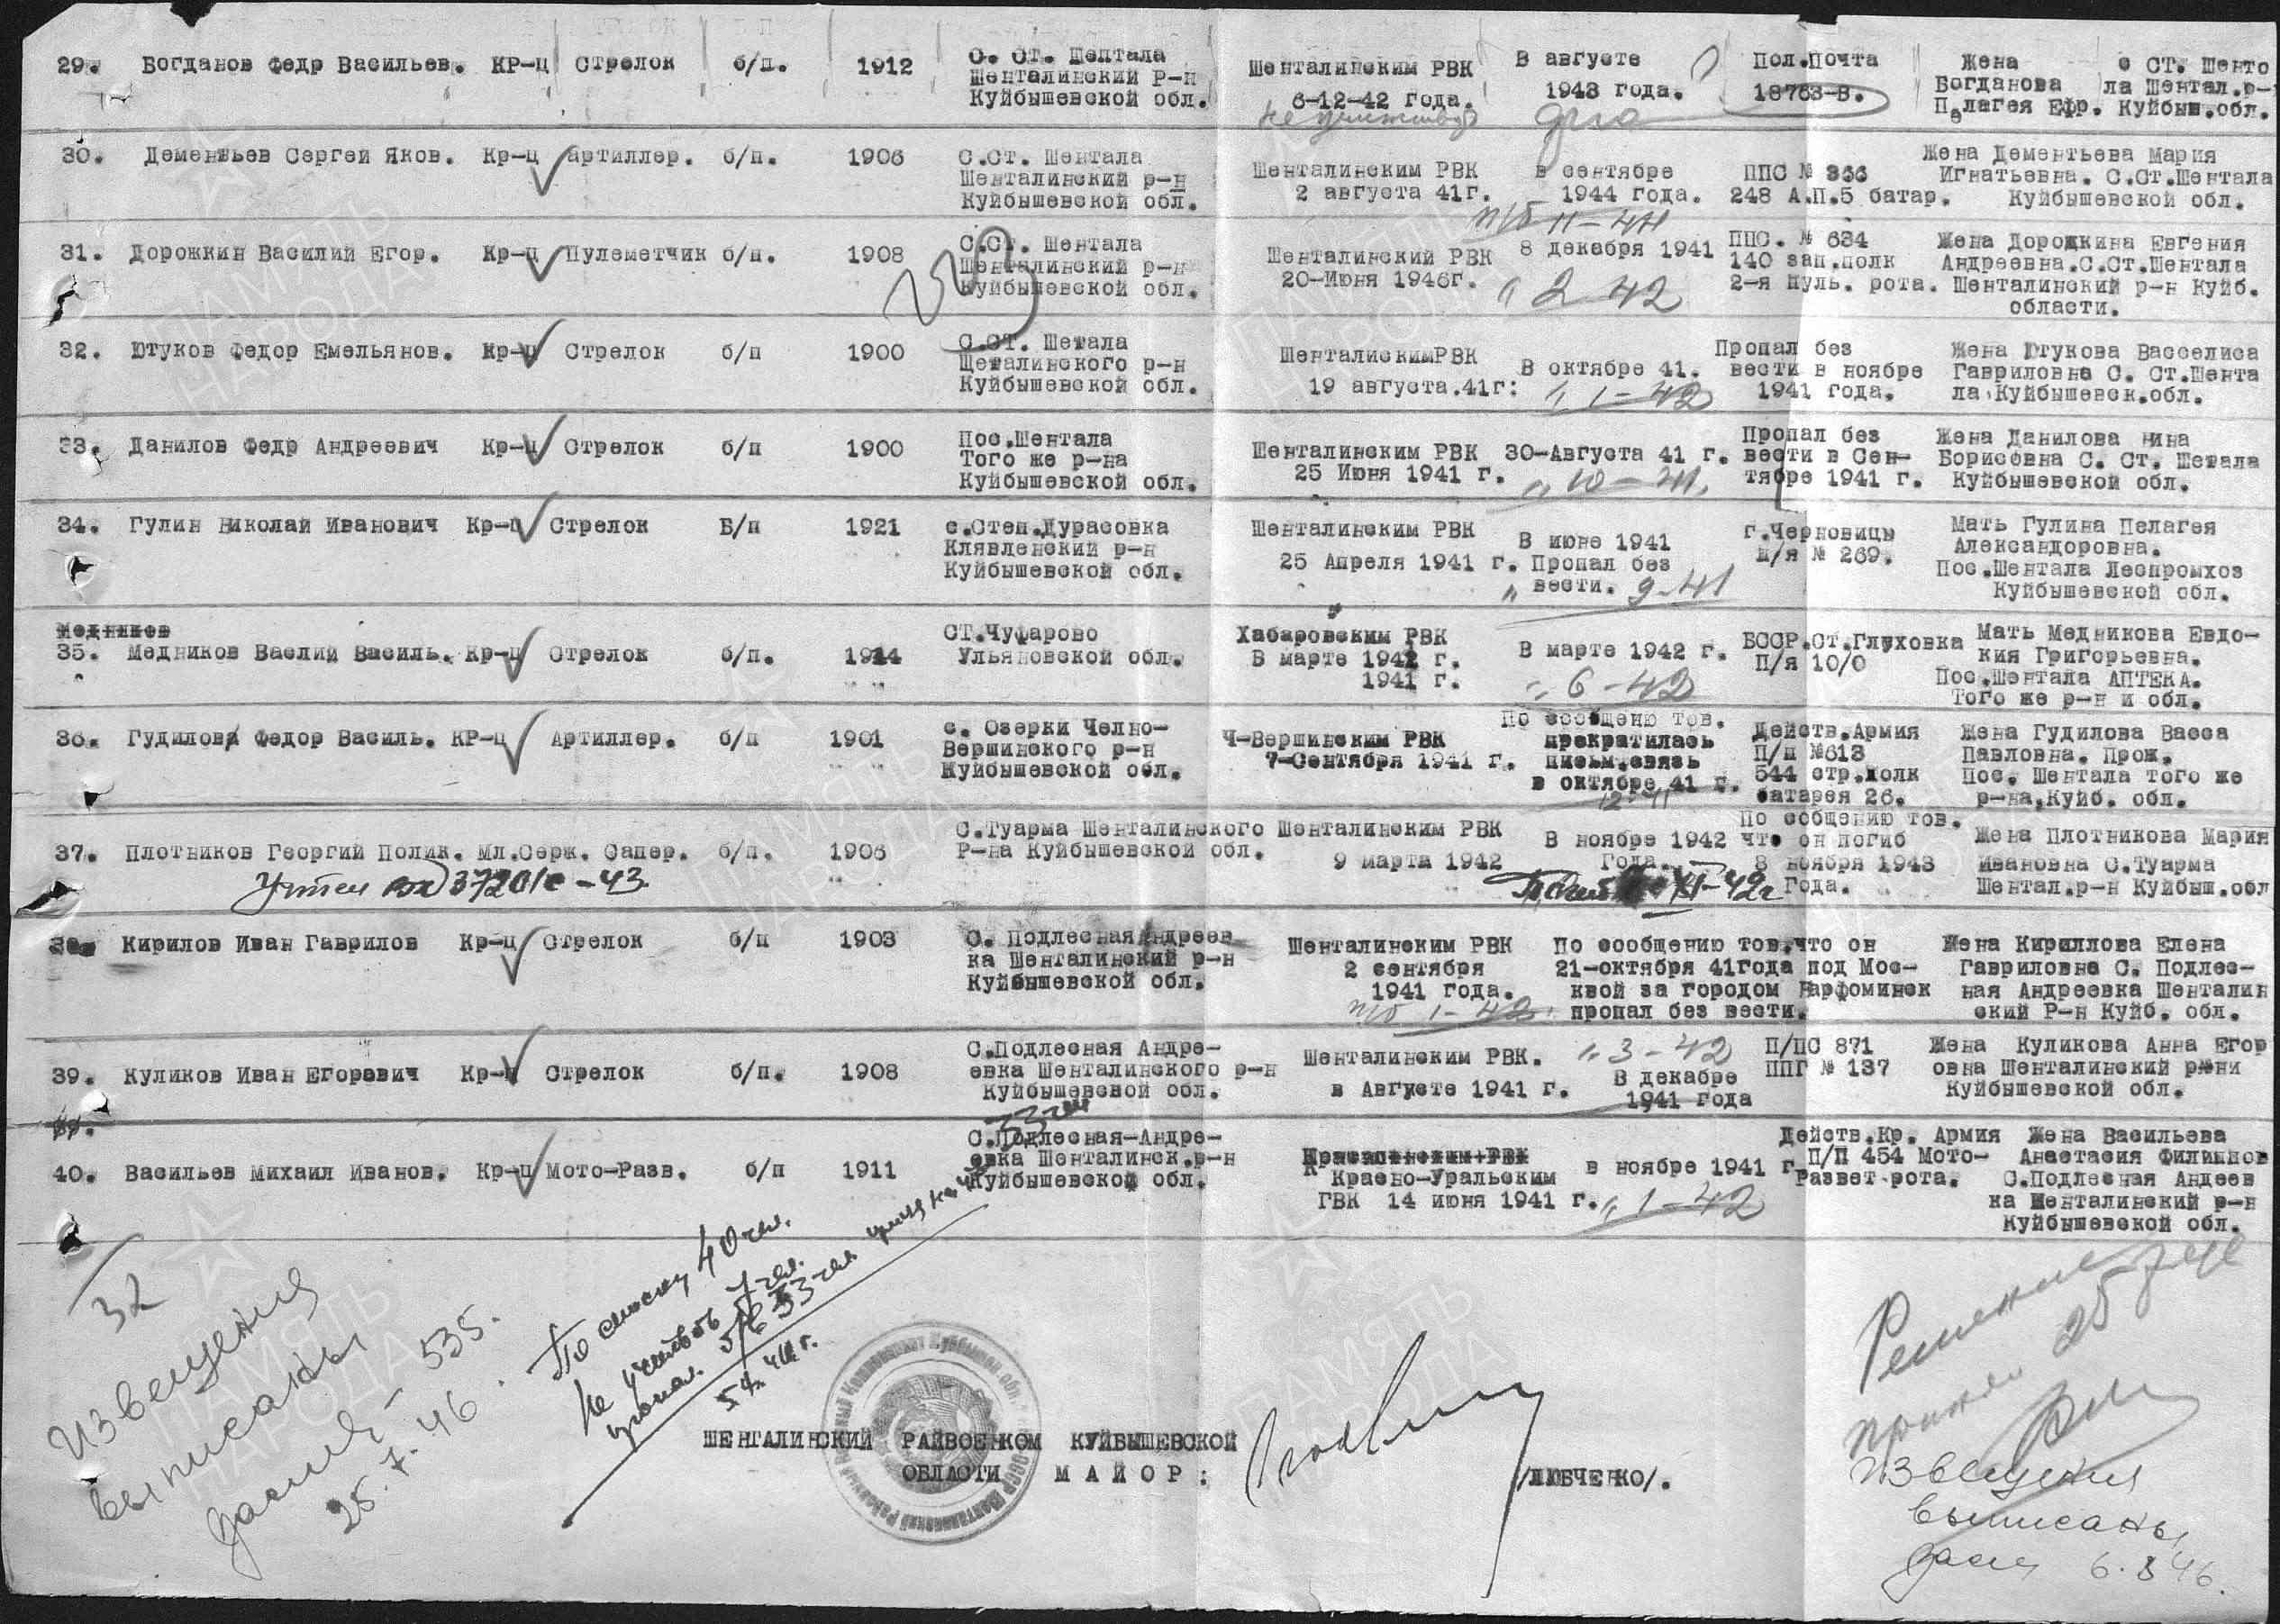 29. Богданов Федр Васильев. КР-ц Стрелок б/п. 1912 С. СТ. Шентала Шенталинский РВК В августе Пол.Почта Жена с СТ. Шенто
Шенталинский р-н 6-12-42 года. 1943 года. 18763-В. Богданова ла Шентал.р-
Куйбышевской обл. Пелагея Ефр. Куйбыш.обл.
30. Дементьев Сергей Яков. Кр-ц артиллер. б/п. 1906 С.Ст. Шентала Шенталинским РВК В сентябре ППС № 366 Жена Дементьева Мария
Шенталинский р-н 2 августа 41г. 1944 года. 248 А.П.5 батар. Игнатьевна. С.Ст.Шентала
Куйбышевской обл. п/б 11-44 Куйбышевской обл.
31. Дорожкин Василий Егор. Кр-ц Пулеметчик б/п. 1908 С.Ст. Шентала Шенталинский РВК 8 декабря 1941 ППС. № 634 Жена Дорожкина Евгения
Шенталинский р-н 20-Июня 1946г. " 2 42 140 зап.полк Андреевна.С.Ст.Шентала
Куйбышевской обл. 2-я Пуль. рота. Шенталинский р-н Куйб.
области.
32. Ютуков Федор Емельянов. Кр-ц Стрелок б/п 1900 С.СТ. Шетала ШенталискимРВК В октябре 41. Пропал без Жена Ютукова Васселиса
Щеталинского р-н 19 августа.41г: " 1-42 вести в ноябре Гавриловне С. Ст.Шента
Куйбышевской обл. 1941 года. ла Куйбышевск.обл.
33. Данилов Федр Андреевич Кр-ц Стрелок б/п 1900 Пос.Шентала Шенталинским РВК 30-Августа 41 г. Пропал без Жена Данилова Нина
Того же р-на 25 Июня 1941 г. " 10-41. вести в Сен- Борисовна С. Ст. Шетала
Куйбышевской обл. тябре 1941 г. Куйбышевской обл.
34. Гулин Николай Иванович Кр-ц Стрелок Б/п 1921 с.Степ.Дурасовка Шенталинским РВК В июне 1941 г.Черновицы Мать Гулина Пелагея
Клявленский р-н 25 Апреля 1941 г. Пропал без П/я № 269. Александоровна.
Куйбышевской обл. " вести. 9-41 Пос.Шентала Леспромхоз
Куйбышевской обл.
Медников
35. Медников Васлий Василь. Кр-ц Стрелок б/п. 1914 СТ.Чуфарово Хабаровским РВК В марте 1942 г. БССР.Ст.Глуховка Мать Медникова Евдо-
Ульяновской обл. В марте 1942 г. " 6-42 П/я 10/0 кия Григорьевна.
1941 г. Пос.Шентала АПТЕКА.
Того же р-н и обл.
36. Гудилов Федор Василь. КР-ц Артиллер. б/п 1901 с. Озерки Челно- Ч-Вершинским РВК По сообщеню тов. Действ.Армия Жена Гудилова Васса
Вершинского р-н 7-Сентября 1941 г. прекратилась П/п №613 Павловна. Прож.
Куйбышевской обл. письм.связь 544 стр.полк Пос. Шентала того же
в октябре 41 г. батарея 26. р-на,Куйб. обл.
12-41
37. Плотников Георгий Полик. Мл.Серж. Сапер. б/п. 1906 С.Туарма Шенталинского Шенталинским РВК В ноябре 1942 По собщению тов. Жена Плотникова Мария
Р-на Куйбышевской обл. 9 марта 1942 Года. что он погиб Ивановна С.Туарма
Учтен вх 37201с-43 XI-42г 8 ноября 1943 Года. Шентал.р-н Куйбыш.обл
38. Кирилов Иван Гаврилов Кр-ц Стрелок б/п 1903 С. Подлесная Андреев Шенталинским РВК По сообщению тов.что он Жена Кириллова Елена
ка Шенталинский р-н 2 сентября 21-октября 41года под Мос- Гавриловна С. Подлес-
Куйбышевской обл. 1941 года. квой за городом Нарфоминск ная Андреевка Шенталин
п/б 1-42 пропал без вести. ский Р-н Куйб. обл.
39. Куликов Иван Егоревич Кр-ц Стрелок б/п. 1908 С.Подлесная Андре- Шенталинским РВК. " 3-42 П/ПС 871 Жена Куликова Анна Егор
евка Шенталинского р-н в Августе 1941 г. В декабре ППГ № 137 овна Шенталинский р-ни
Куйбышевской обл. 1941 года Куйбышевской обл.
40. Васильев Михаил Иванов. Кр-ц Мото-Разв. б/п 1911 С.Подлесная-Андре- Красно-Уральским в ноябре 1941 г. Действ.Кр. Армия Жена Васильева
евка Шенталинск.р-н ГВК 14 июня 1941 г. " 1-42 П/П 454 Мото- Анастасия Филиппов
Куйбышевской обл. Развет.рота. С.Подлесная Андеев
ка Шенталинский р-н
Куйбышевской обл.
32
Извещения
выписаны
535.
25.7.46.
По списку 40 чел.
Не учитывать 7 чел.
33 чел
ШЕНТАЛИНСКИЙ РАЙВОЕНКОМ КУЙБЫШЕВСКОЙ
ОБЛАСТИ МАЙОР: /ЛЮБЧЕНКО/.
Решение
Извещения
выписаны
6.8 46.
ПАМЯТЬ
НАРОДА